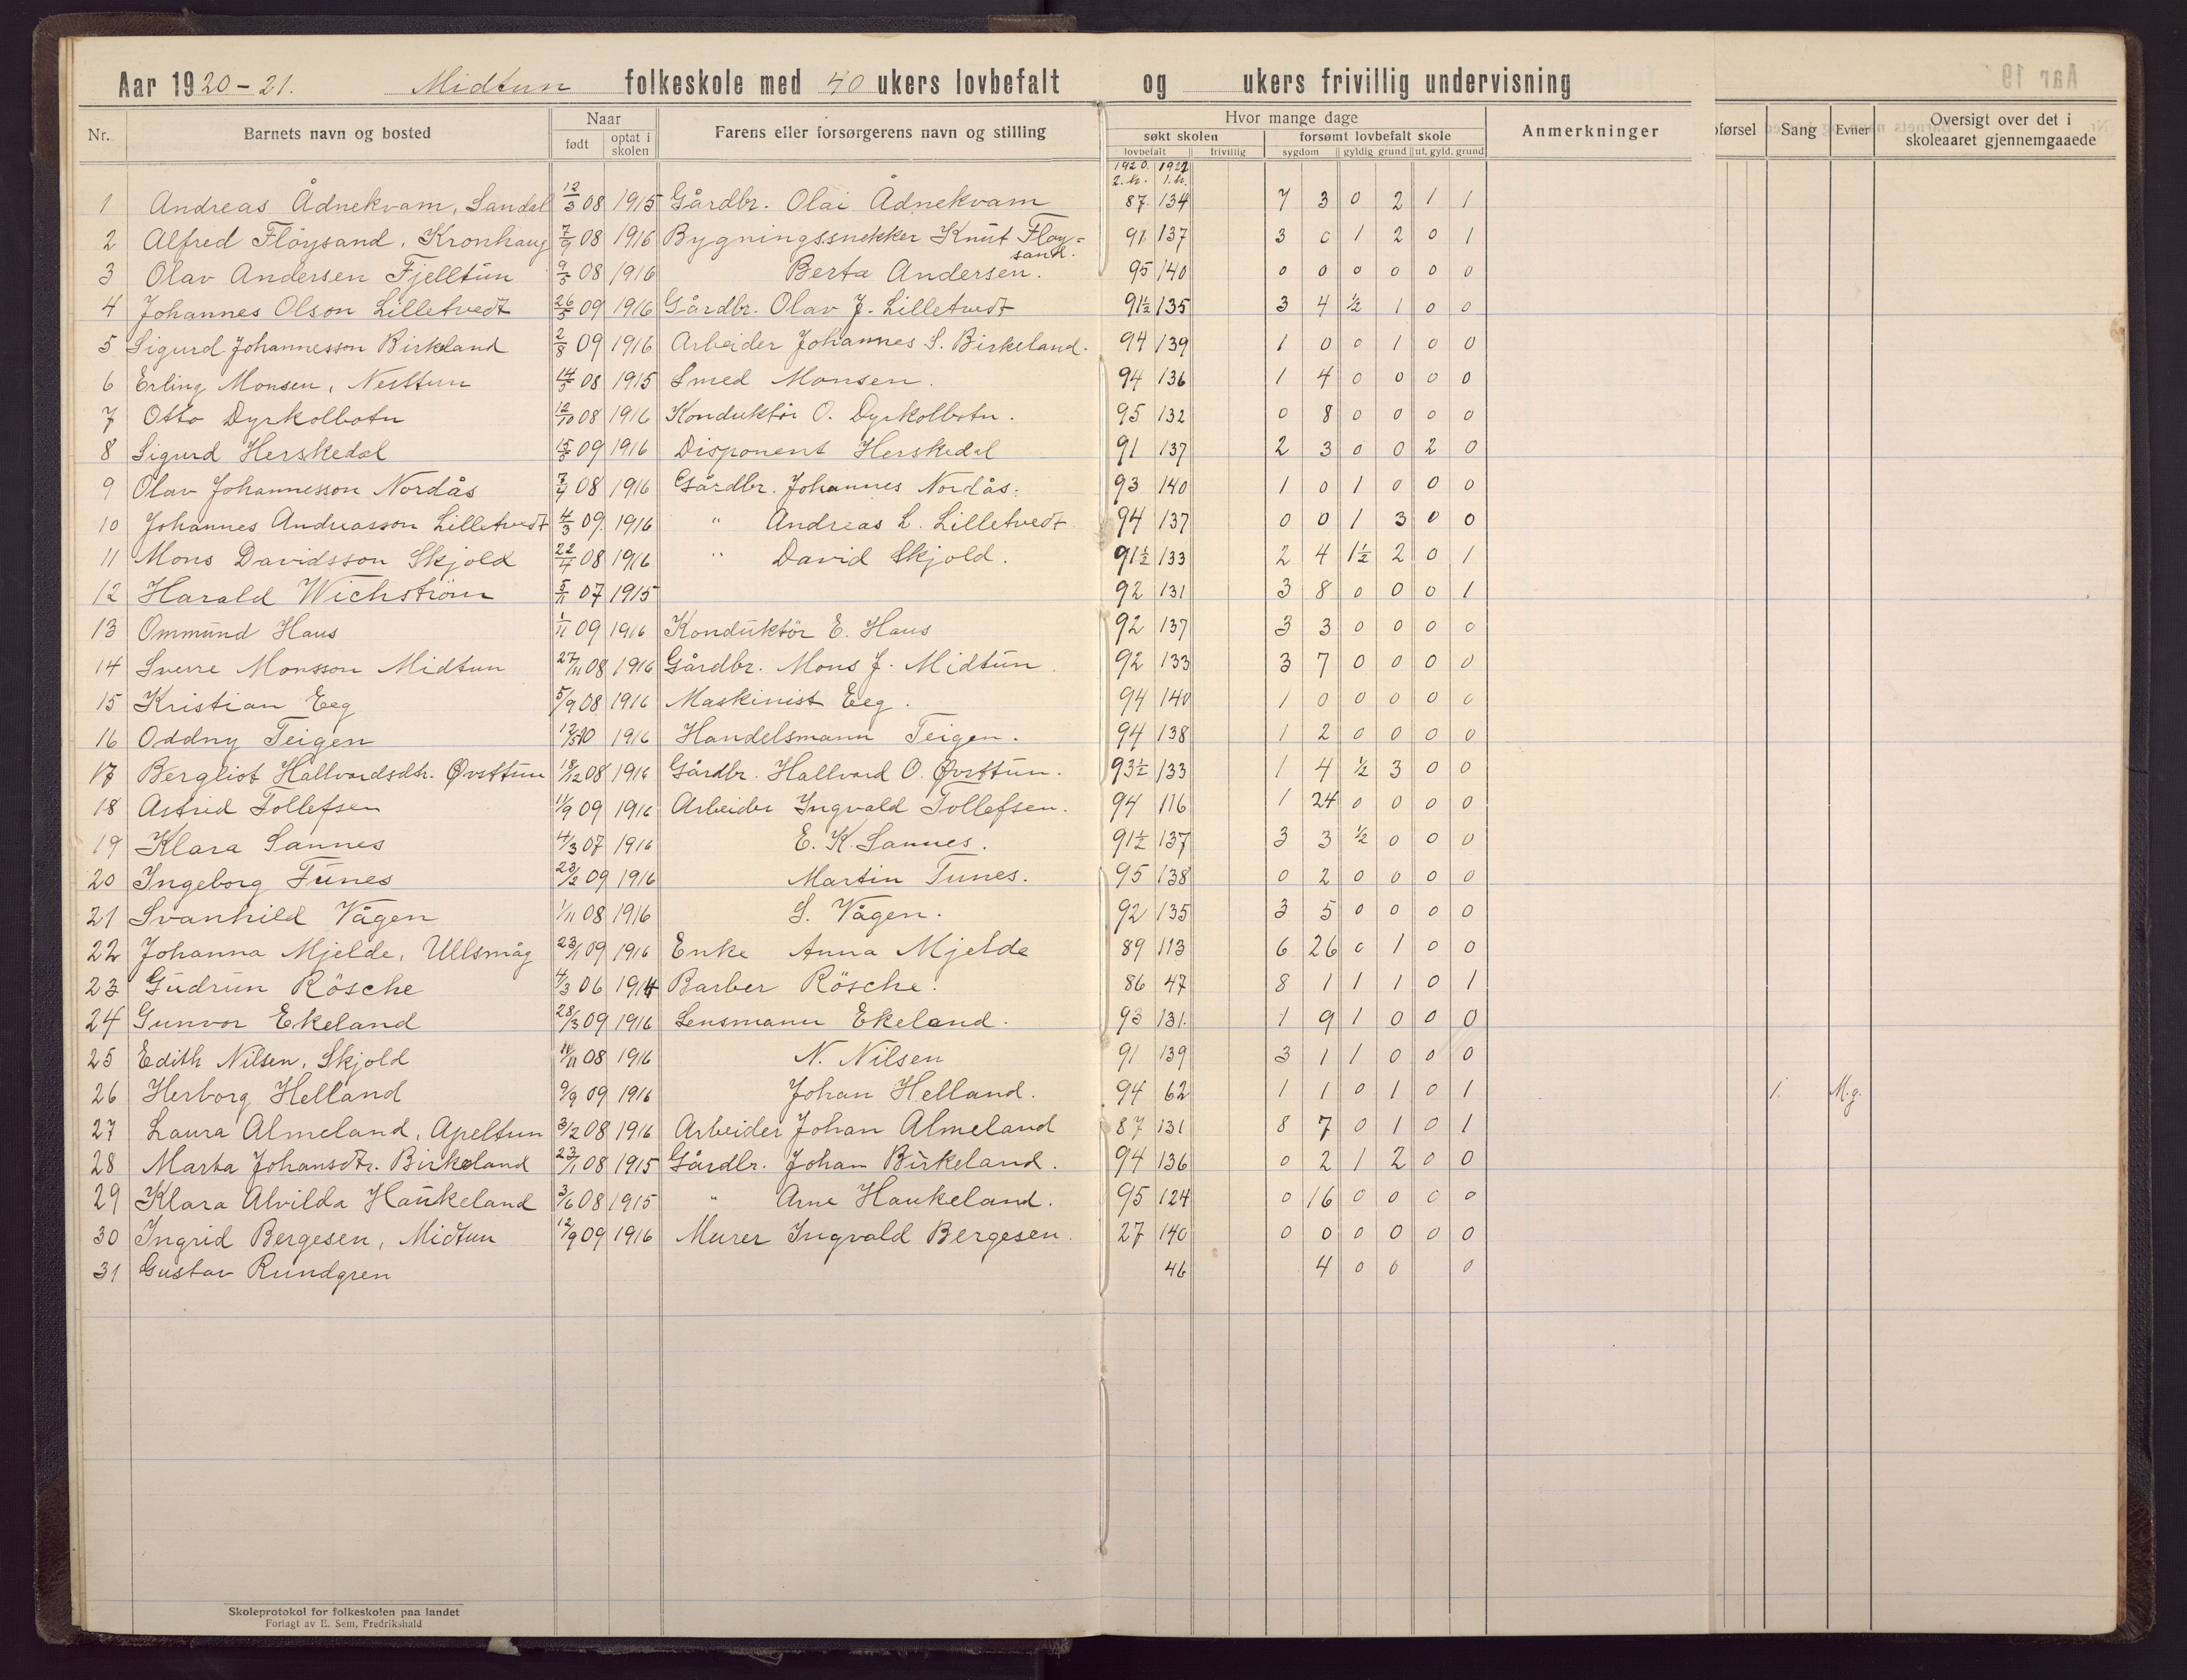 Aar 1920-21. Midtun folkeskole med 40 ukers lovbefalt og ukers frivillig undervisning
Nr. Barnets navn og bosted Naar født optat i skolen Farens eller forsørgerens navn og stilling Hvor mange dage søkt skolen lovbefalt frivillig forsømt lovbefalt skole sygdom gyldig grund ut. gyld. grund Anmerkninger førsel Sang Evner Oversigt over det i skoleaaret gjennemgaaede
1920. 1921
2.h. 1.h.
1 Andreas Ådnekvam, Sandal 12/3 08 1915 Gårdbr. Olai Ådnekvam 87 134 7 3 0 2 1 1
2 Alfred Flöysand, Kronhaug 7/9 08 1916 Bygningssnekker Knut Flöy-
sand. 91 137 3 0 1 2 0 1
3 Olav Andersen Fjelltun 9/5 08 1916 Berta Andersen. 95 140 0 0 0 0 0 0
4 Johannes Olson Lilletvedt 26/5 09 1916 Gårdbr. Olav J. Lilletvedt 91½ 135 3 4 ½ 1 0 0
5 Sigurd Johannesson Birkeland 2/8 09 1916 Arbeider Johannes S. Birkeland. 94 139 1 0 0 1 0 0
6 Erling Monsen, Nesttun 14/5 08 1915 Smed Monsen. 94 136 1 4 0 0 0 0
7 Otto Dyrkolbotn 12/10 08 1916 Konduktör O. Dyrkolbotn. 95 132 0 8 0 0 0 0
8 Sigurd Herskedal 09 1916 Disponent Herskedal 91 137 2 3 0 0 2 0
9 Olav Johannesson Nordås 08 1916 Gårdbr. Johannes Nordås. 93 140 1 0 1 0 0 0
10 Johannes Andreasson Lilletvedt 4/3 09 1916 " Andreas L. Lilletvedt 94 137 0 0 1 3 0 0
11 Mons Davidsson Skjold 22/4 08 1916 " David Skjold. 91½ 133 2 4 1½ 2 0 1
12 Harald Wichström 5/11 07 1915 92 131 3 8 0 0 0 1
13 Ommund Haus 1/11 09 1916 Konduktör E. Haus 92 137 3 3 0 0 0 0
14 Sverre Monsson Midtun 27/11 08 1916 Gårdbr. Mons J. Midtun. 92 133 3 7 0 0 0 0
15 Kristian Eeg 5/9 08 1916 Maskinist Eeg. 94 140 1 0 0 0 0 0
16 Oddny Teigen 10 1916 Handelsmann Teigen. 94 138 1 2 0 0 0 0
17 Bergliot Hallvardsdtr. Øvsttun 18/12 08 1916 Gårdbr. Hallvard O. Øvsttun. 93½ 133 1 4 ½ 3 0 0
18 Astrid Tollefsen 11/9 09 1916 Arbeider Ingvald Tollefsen. 94 116 1 24 0 0 0 0
19 Klara Sannes 4/3 07 1916 E. K. Sannes. 91½ 137 3 3 ½ 0 0 0
20 Ingeborg Tunes 23/2 09 1916 Martin Tunes. 95 138 0 2 0 0 0 0
21 Svanhild Vågen 1/11 08 1916 S. Vågen. 92 135 3 5 0 0 0 0
22 Johanna Mjelde, Ullsmåg 23/1 09 1916 Enke Anna Mjelde 89 113 6 26 0 1 0 0
23 Gudrun Rösche 4/3 06 1914 Barber Rösche. 86 47 8 1 1 1 0 1
24 Gunvor Ekeland 28/3 09 1916 Lensmann Ekeland. 93 131 1 9 1 0 0 0
25 Edith Nilsen, Skjold 08 1916 N. Nilsen 91 139 3 1 1 0 0 0
26 Herborg Helland 9/9 09 1916 Johan Helland. 94 62 1 1 0 1 0 1 1. M.g.
27 Laura Almeland, Apeltun 3/2 08 1916 Arbeider Johan Almeland 87 131 8 7 0 1 0 1
28 Marta Johansdtr. Birkeland 23/1 08 1915 Gårdbr. Johan Birkeland. 94 136 0 2 1 2 0 0
29 Klara Alvilda Haukeland 3/6 08 1915 " Arne Haukeland. 95 124 0 16 0 0 0 0
30 Ingrid Bergesen, Midtun 12/9 09 1916 Murer Ingvald Bergesen. 27 140 0 0 0 0 0 0
31 Gustav Rundgren 46 4 0 0 0
Skoleprotokol for folkeskolen paa landet
Forlagt av E. Sem, Fredrikshald